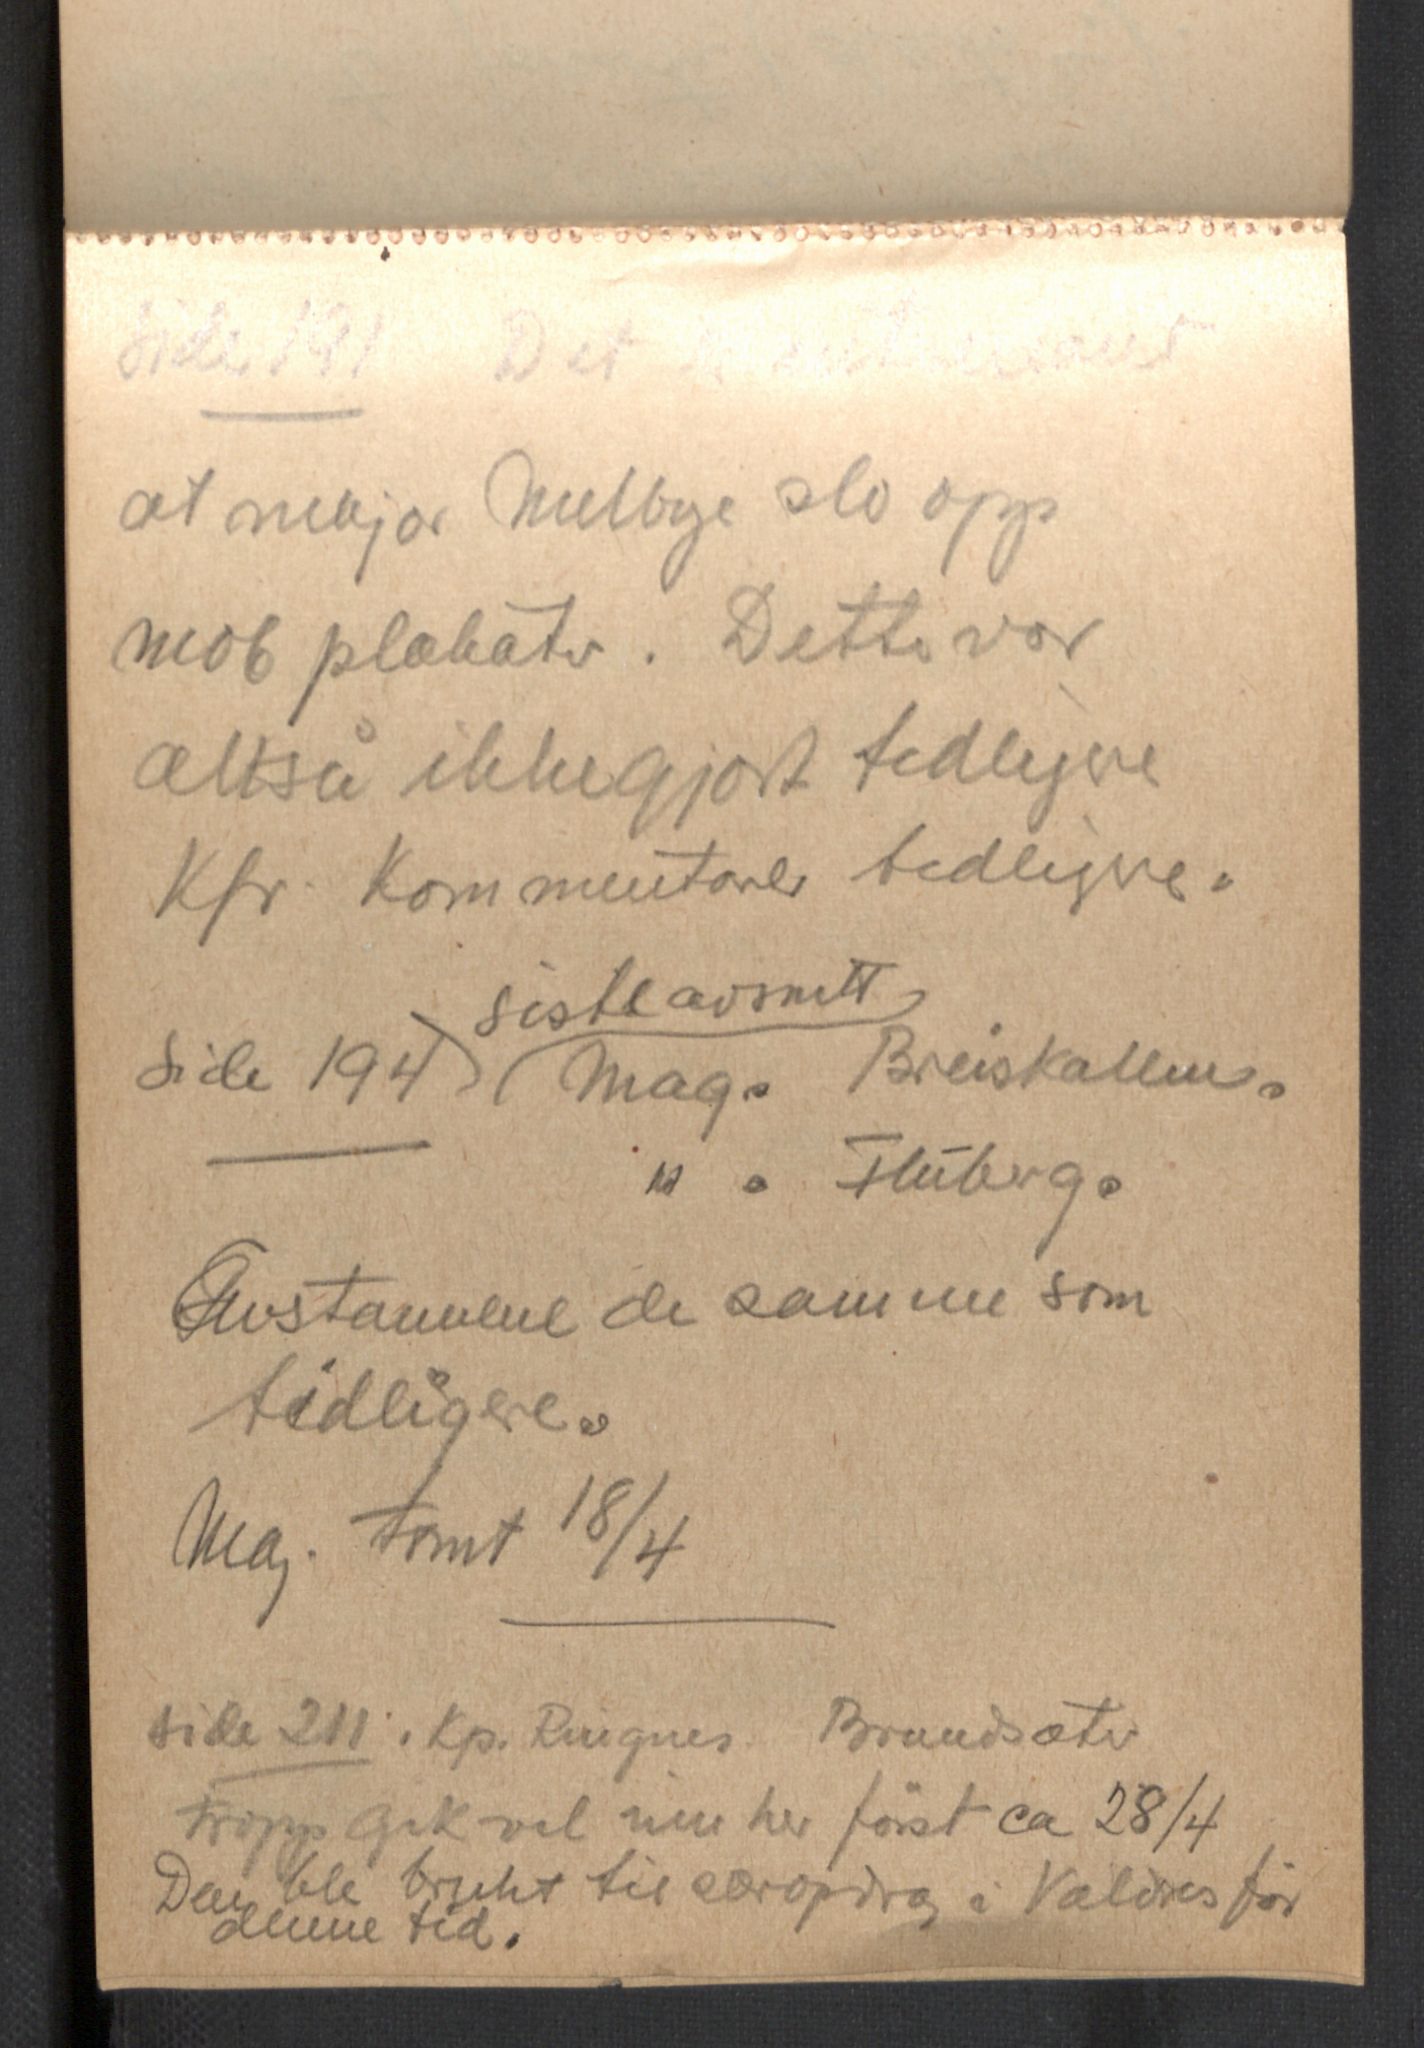 side 191 Det
at major Melbye slo opp
mob plakater. Dette var
altså ikke gjort tidligere
Kfr. Kommentarer tidligere.
siste avsnitt
Side 194 Mag. Breiskallen.
" . Fluberg.
Avstandene de samme som
tidligere.
Maj. Tomt 18/4
side 211. Kp. Ringnes Brandsæter
Tropp gik vel inn her først ca 28/4
Den ble brukt til særopdrag i Valdres før
denne tid.